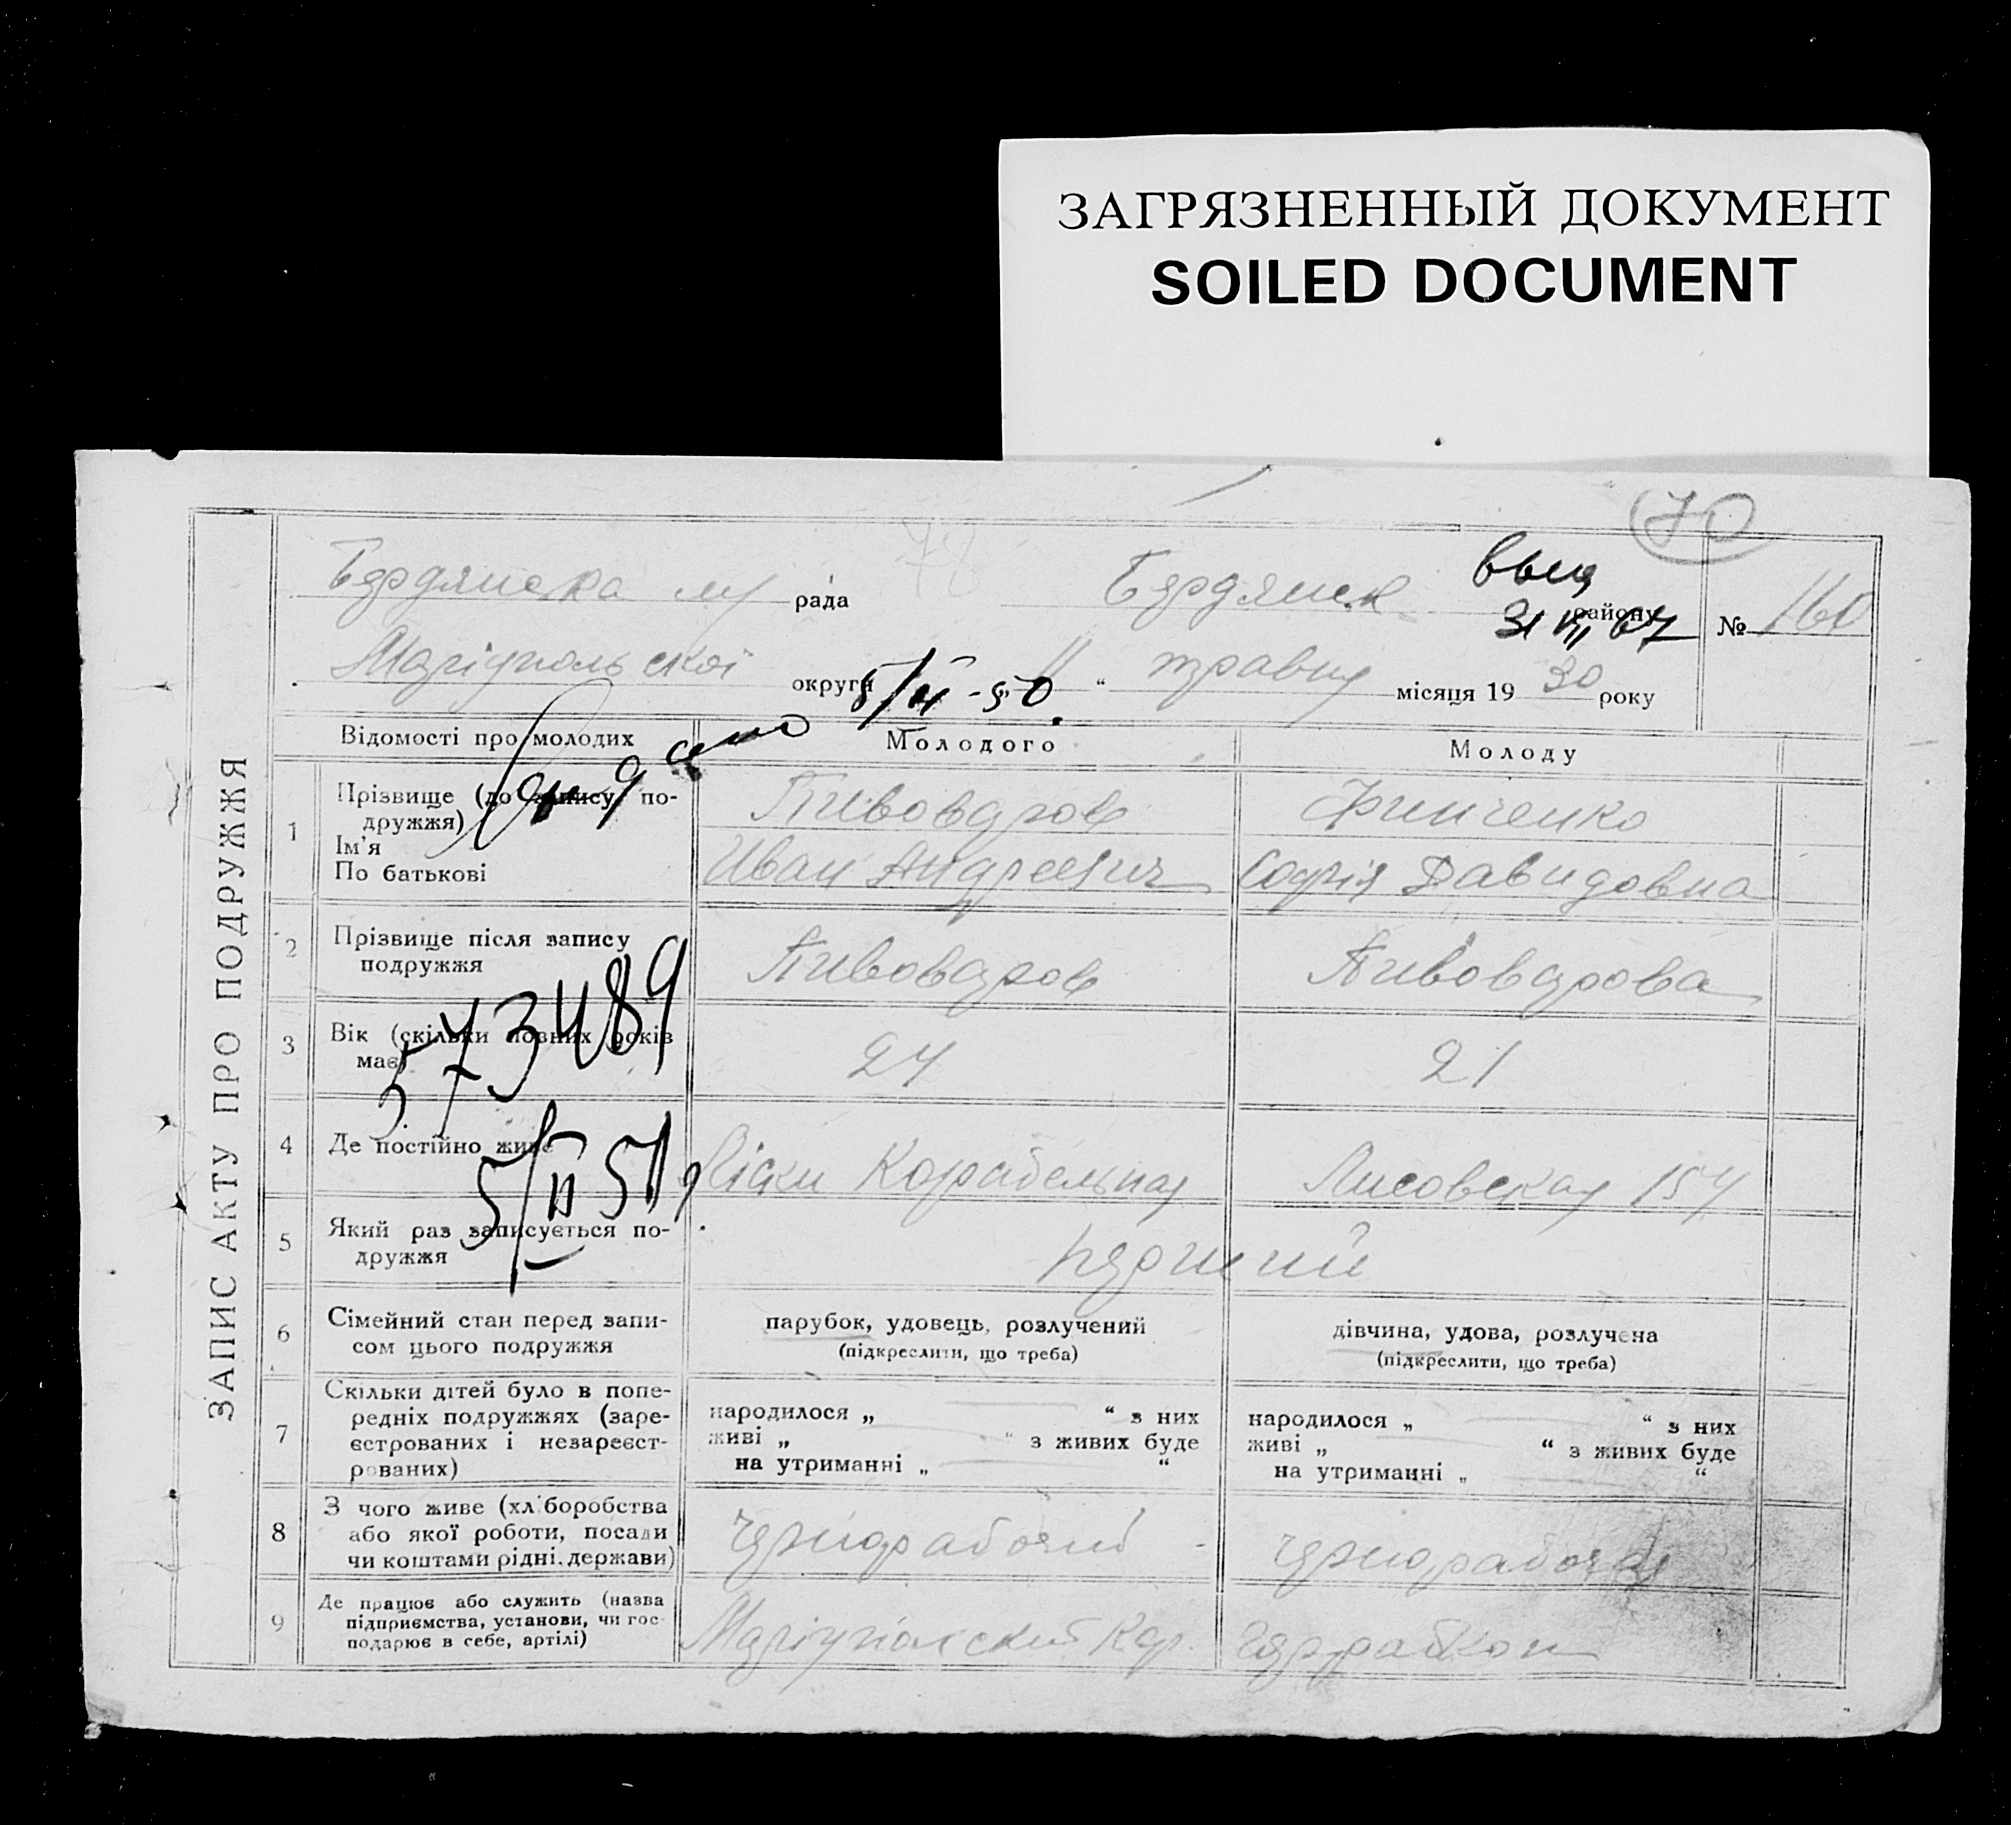 ЗАГРЯЗНЕННЫЙ ДОКУМЕНТ
SOILED DOCUMENT
70
ЗАПИС АКТУ ПРО ПОДРУЖЖЯ
Бердянска рада Бердянск району № 160
Маріупольскої округи „11“ травня місяця 1930 року
31 67
Відомості про молодих Молодого Молоду
1 Прізвище (до запису подружжя) Пивоваров Финченко
Ім'я
По батькові Иван Андреевич Софія Давидовна
2 Прізвище після запису
подружжя Пивоваров Пивоварова
573489
3 Вік (скільки повних років
має) 24 21
4 Де постійно живе Ліски Корабельная Лисовская 154
5/II 51
5 Який раз записується по-
дружжя перший
6 Сімейний стан перед запи-
сом цього подружжя
парубок, удовець, розлучений
(підкреслити, що треба)
дівчина, удова, розлучена
(підкреслити, що треба)
7 Скільки дітей було в попе-
редніх подружжях (заре-
єстрованих і незареєст-
рованих)
народилося „ “ з них
живі „ “ з живих буде
на утриманні „ “
народилося „ “ з них
живі „ “ з живих буде
на утриманні „ “
8 З чого живе (хліборобства
або якої роботи, посади
чи коштами рідні, держави)
чернорабочий чернорабочая
9 Де працює або служить (назва
підприємства, установи, чи гос-
подарює в себе, артілі)